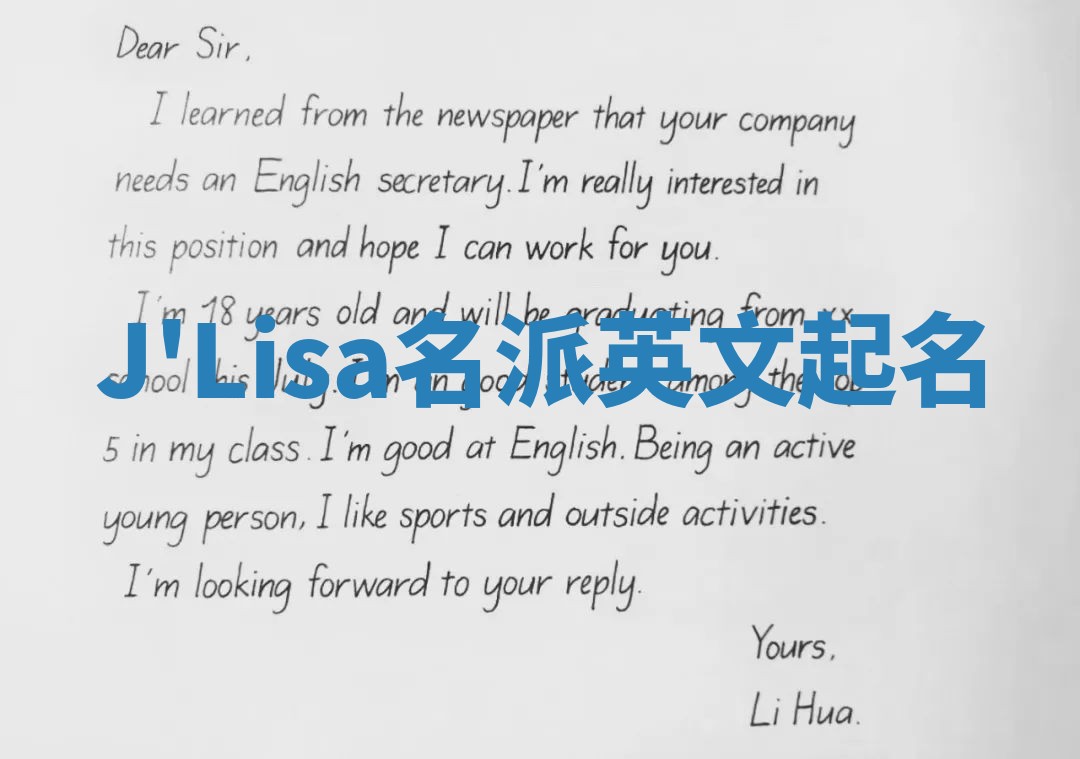 Dear Sir,
I learned from the newspaper that your company
needs an English secretary. I'm really interested in
this position and hope I can work for you.
I'm 18 years old and will be graduating from xx
school this July. I'm an good student among the top
J'Lisa名派英文起名
5 in my class. I'm good at English. Being an active
young person, I like sports and outside activities.
I'm looking forward to your reply.
Yours,
Li Hua.